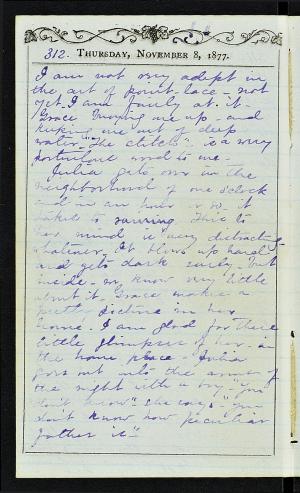 312. THURSDAY, NOVEMBER 8, 1877.
I am not very adept in
the art of point-lace - not
yet. I am fairly at it -
Grace tuning me up - and
keeping me out of deep
water. "The clitch" is a very
portentous word to me -
Julia gets over in the
neighborhood of one o'clock
and in an hour or so it
takes to raining. This to
her mind is very distracting
whatever. It blows up hard
and gets dark early, but
inside - we know very little
about it. Grace makes a
pretty picture in her
home. I am glad for these
little glimpses of her - in
the home place. Julia
goes out into the
the night with a boy. "You
don't know" she says - "you
don't know how peculiar
father is"